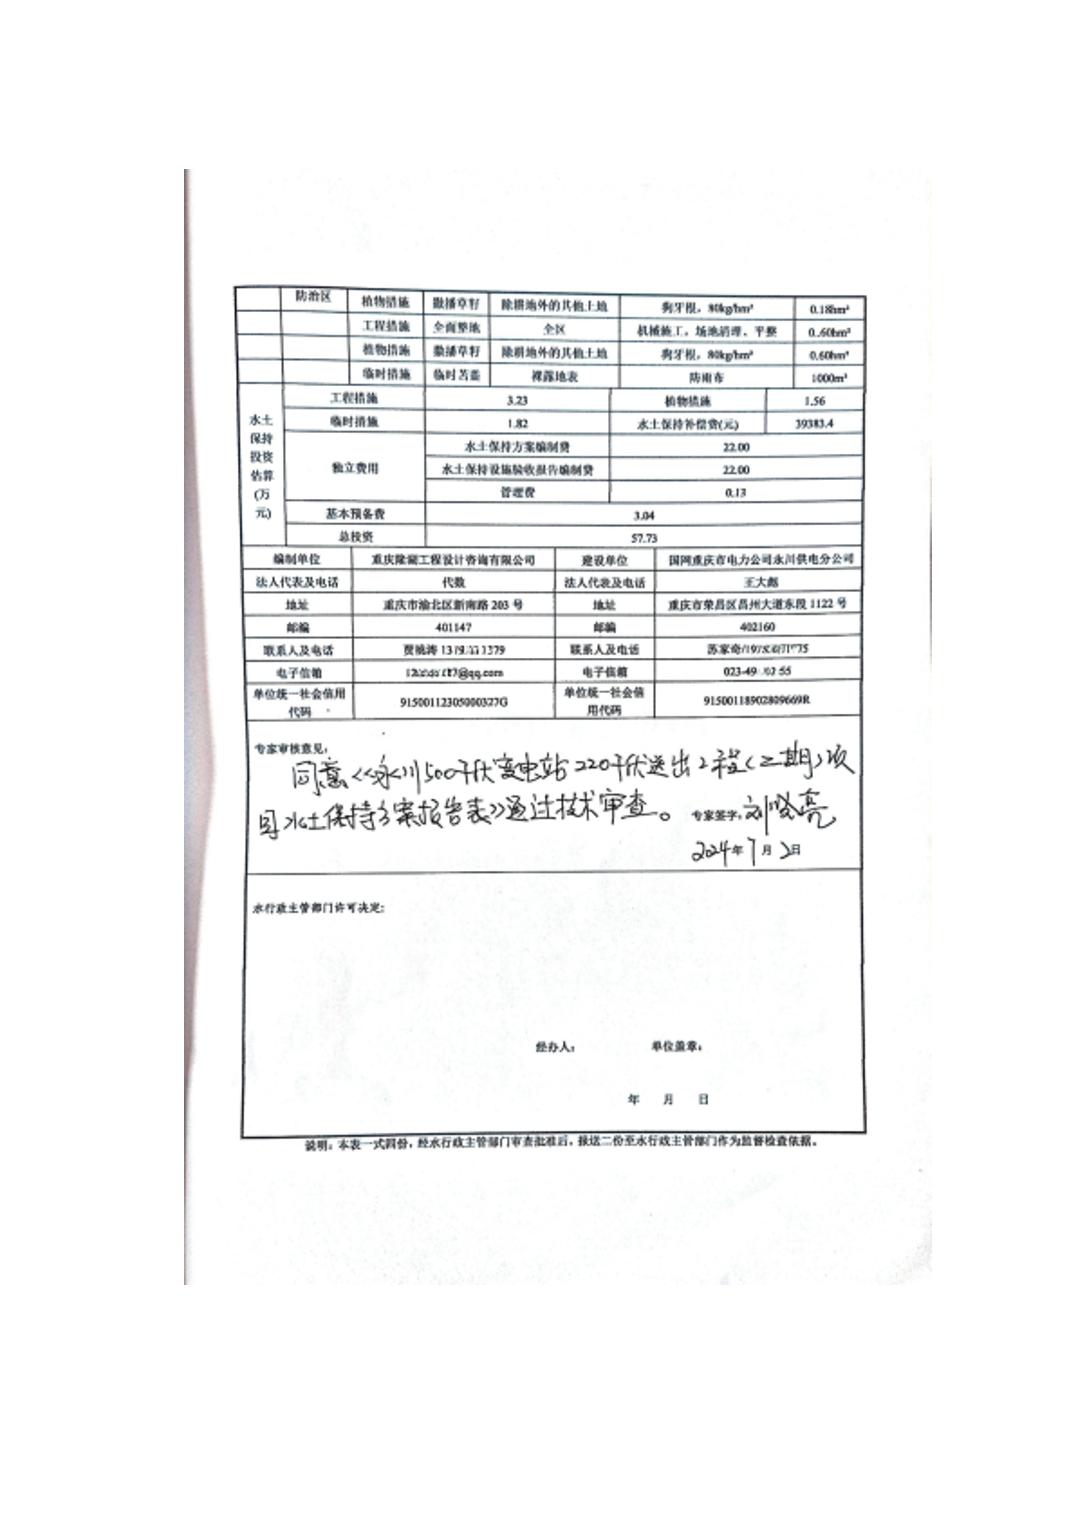 防治区 植物措施 撒播草籽 除耕地外的其他土地 狗牙根，80kg/hm² 0.18hm²
工程措施 全面整地 全区 机械施工，场地清理、平整 0..60hm²
植物措施 撒播草籽 除耕地外的其他土地 狗牙根，80kg/hm² 0.60hm²
临时措施 临时苫盖 裸露地表 防雨布 1000m²
水土保持投资估算(万元) 工程措施 3.23 植物措施 1.56
临时措施 1.82 水土保持补偿费(元) 39383.4
独立费用 水土保持方案编制费 22.00
水土保持设施验收报告编制费 22.00
管理费 0.13
基本预备费 3.04
总投资 57.73
编制单位 重庆隆湖工程设计咨询有限公司 建设单位 国网重庆市电力公司永川供电分公司
法人代表及电话 代数 法人代表及电话 王大彪
地址 重庆市渝北区新南路 203 号 地址 重庆市荣昌区昌州大道东段 1122 号
邮编 401147 邮编 402160
联系人及电话 联系人及电话 苏家奇
电子信箱 @qq.com 电子信箱 023-49
单位统一社会信用代码 91500112305000327G 单位统一社会信用代码 91500118902809669R
专家审核意见：
同意《永川500千伏变电站220千伏送出工程(二期)项
目水土保持方案报告表》通过技术审查。 专家签字：刘晓亮
2024年7月2日
水行政主管部门许可决定:
经办人： 单位盖章：
年 月 日
说明：本表一式四份，经水行政主管部门审查批准后，报送二份至水行政主管部门作为监督检查依据。